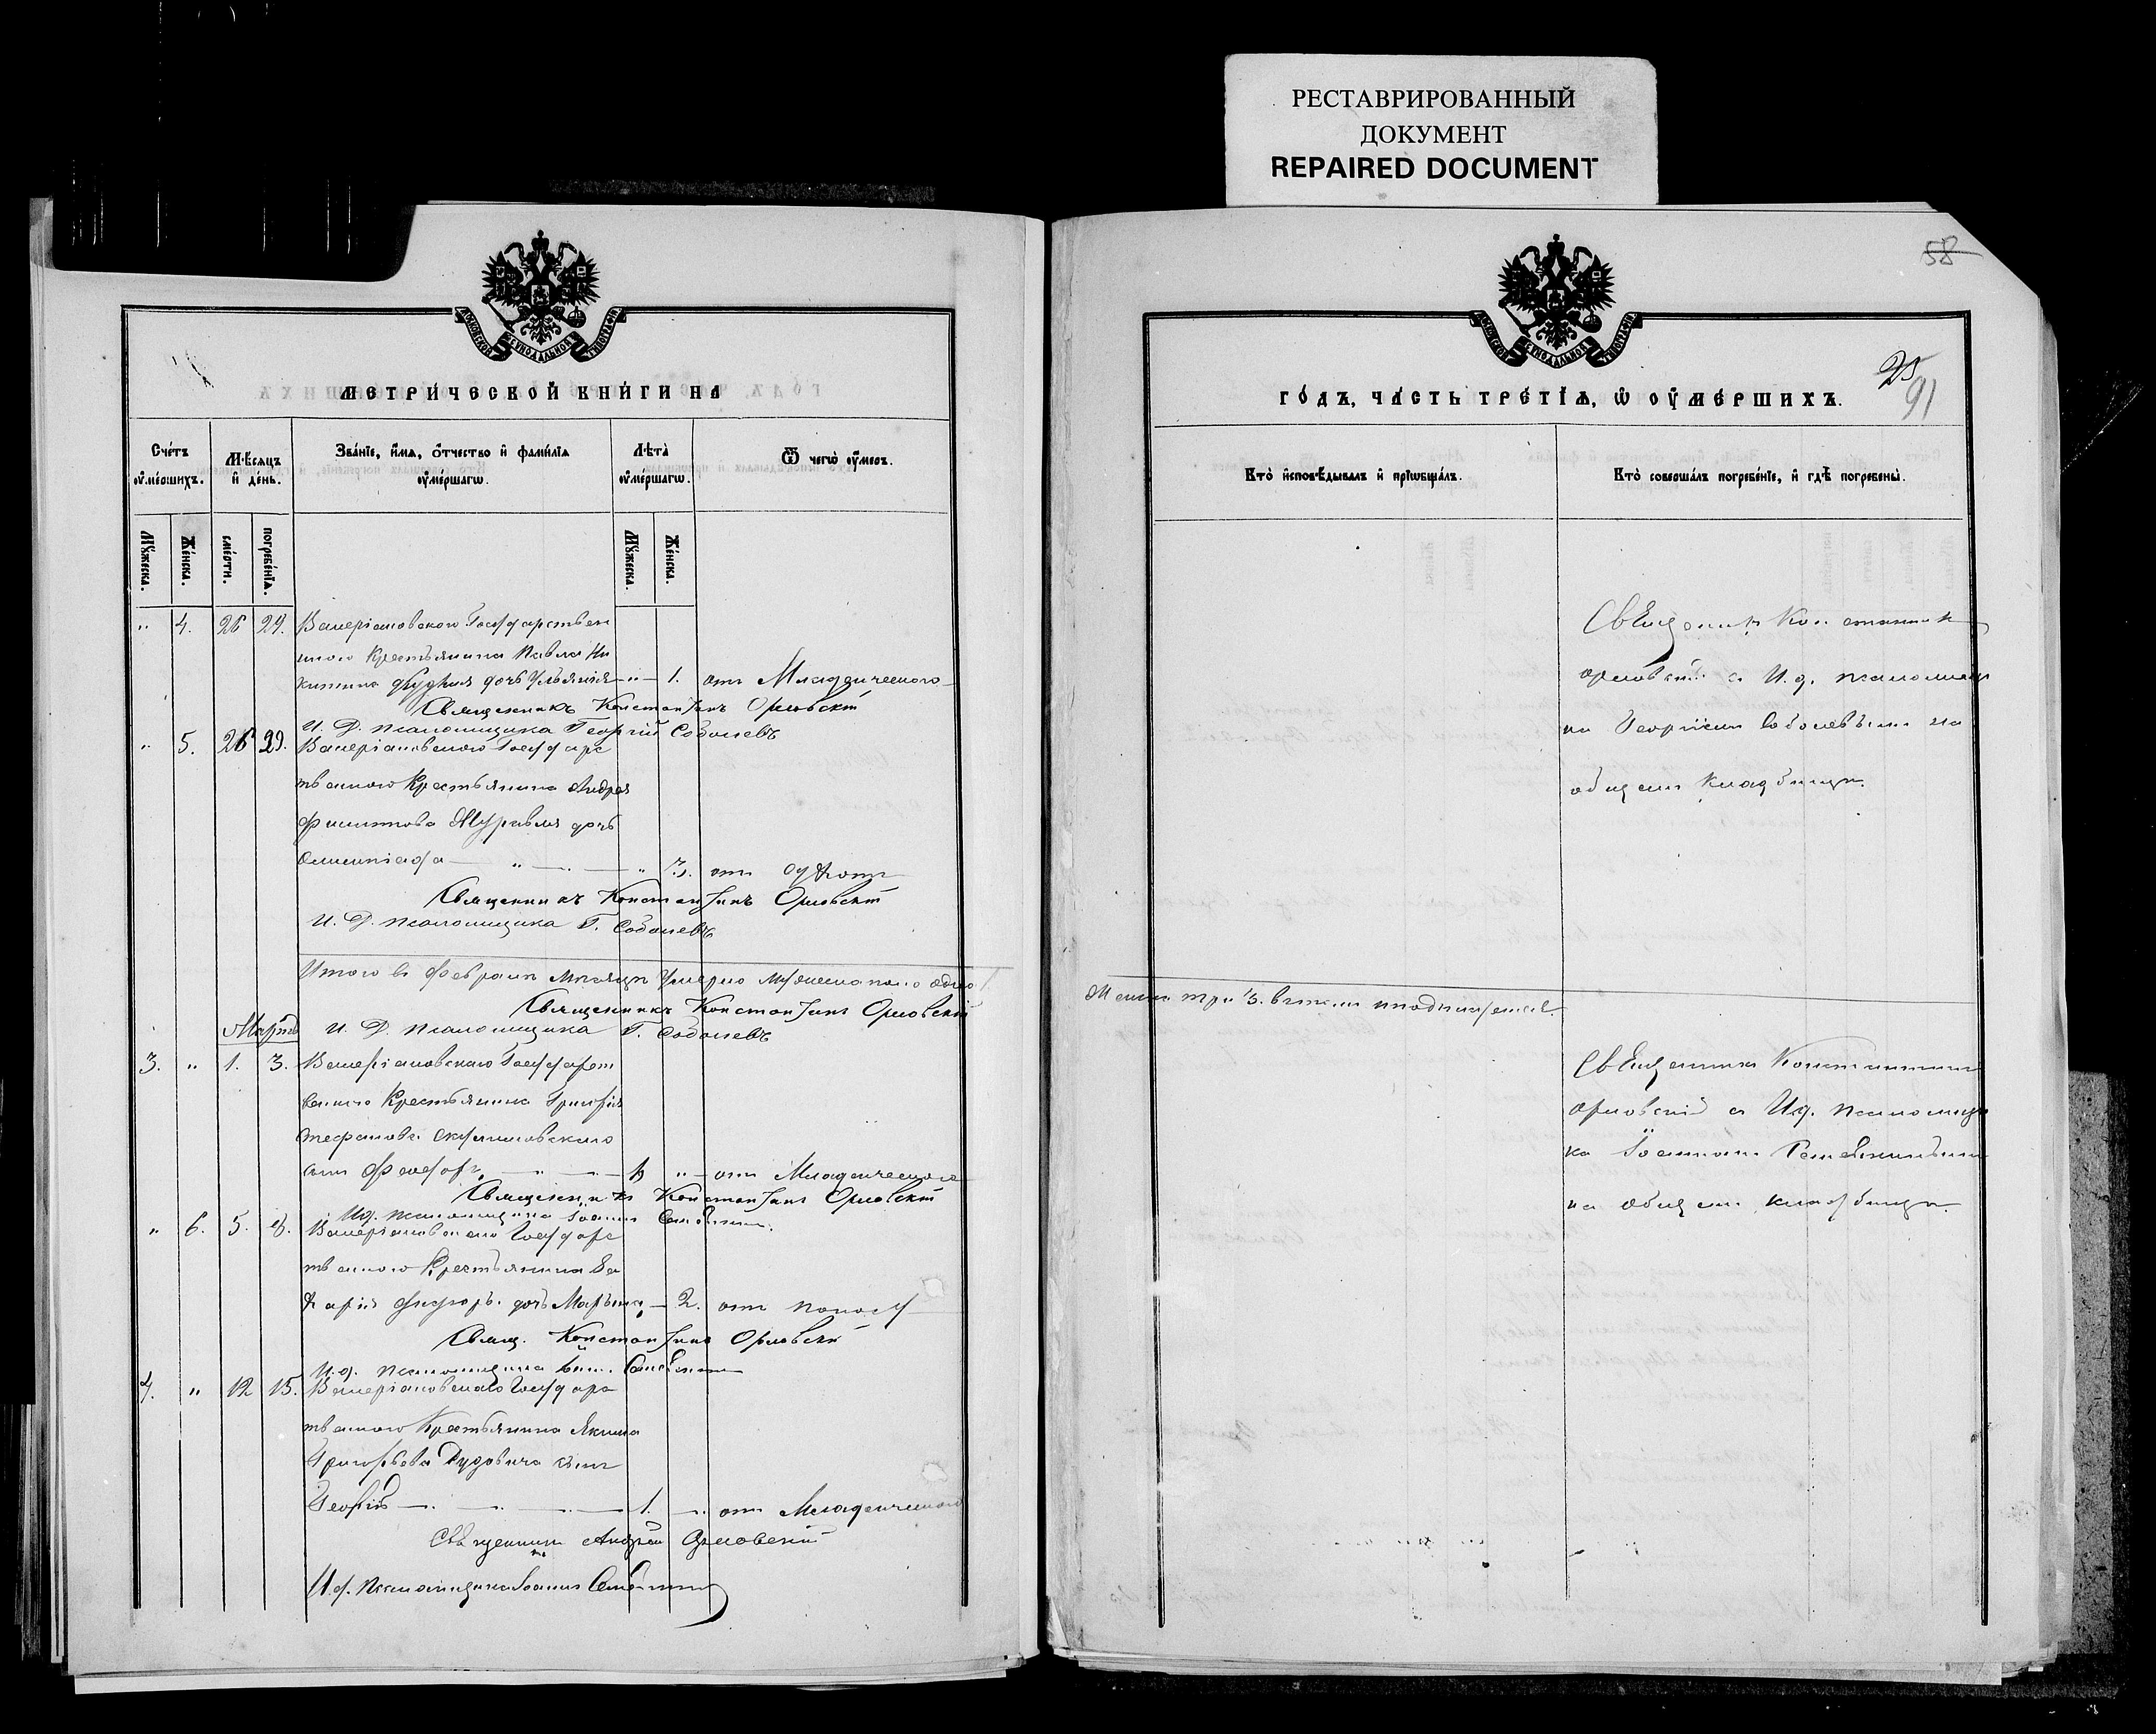 РЕСТАВРИРОВАННЫЙ
ДОКУМЕНТ
REPAIRED DOCUMENT
МЕТРИ́ЧЕСКОЙ КНИ́ГИ НА
Сче́тъ ᲂу҆ме́ршихъ.
Мѣ́сяцъ и҆ де́нь.
Зва́нїе, и҆́мя, ѻ҆́тчество и҆ фами́лїя ᲂу҆ме́ршагѡ.
Лѣ́та ᲂу҆ме́ршагѡ.
Ѿ чегѡ̀ ᲂу҆́меръ.
Мꙋ́жеска.
Же́нска.
сме́рти.
погребе́нїѧ.
Мꙋ́жеска.
Же́нска.
" 4. 26 29. Валеріановскаго Государствен
ннаго Крестьянина Павла Ни
китина дочь Ульянія — " — 1. отъ Младенческаго
Священникъ Константинъ Орловскій
И. Д. псаломщика Георгій Соболевъ
" 5. 26 29. Валеріановскаго Государс
твеннаго Крестьянина Андрея
Филиппова дочь
Олимпіада — " — " 3. отъ
Священникъ Константинъ Орловскій
И. Д. псаломщика Г. Соболевъ
Итого въ Февралѣ мѣсяцѣ умерло мужеска пола одно
Священникъ Константинъ Орловскій
И. Д. псаломщика Г. Соболевъ
Мартъ
3. " 1. 3. Валеріановскаго Государст
веннаго Крестьянина Григорія
сынъ Феодоръ — " — " — отъ Младенческаго
Священникъ Константинъ Орловскій
И. д. псаломщика Іоаннъ
" 6. 5. 8. Валеріановскаго Государс
твеннаго Крестьянина За
харія дочь — 2. отъ
Свящ. Константинъ Орловскій
И. д. псаломщика
4. " 12 15. Валеріановскаго Государс
твеннаго Крестьянина Якима
Григорьева сынъ
Георгій — 1. — отъ Младенческаго
Священникъ Андрей Орловскій
И. д. псаломщика Іоаннъ
58
25
91
ГО́ДЪ, ЧА́СТЬ ТРЕ́ТЇѦ, Ѡ҆ ОУ҆МЕ́РШИХЪ.
Кто̀ и҆сповѣ́дывалъ и҆ прїѡбща́лъ.
Кто̀ соверша́лъ погребе́нїе, и҆ гдѣ̀ погребены̀.
Священникъ Константинъ
Орловскій съ И. д. псаломщи
ка Георгіемъ Соболевымъ на
общемъ кладбищѣ.
Женска три 3. въ чемъ и подписуемся.
Священникъ Константинъ
Орловскій съ И. д. псаломщи
ка Іоанномъ
на общемъ кладбищѣ.